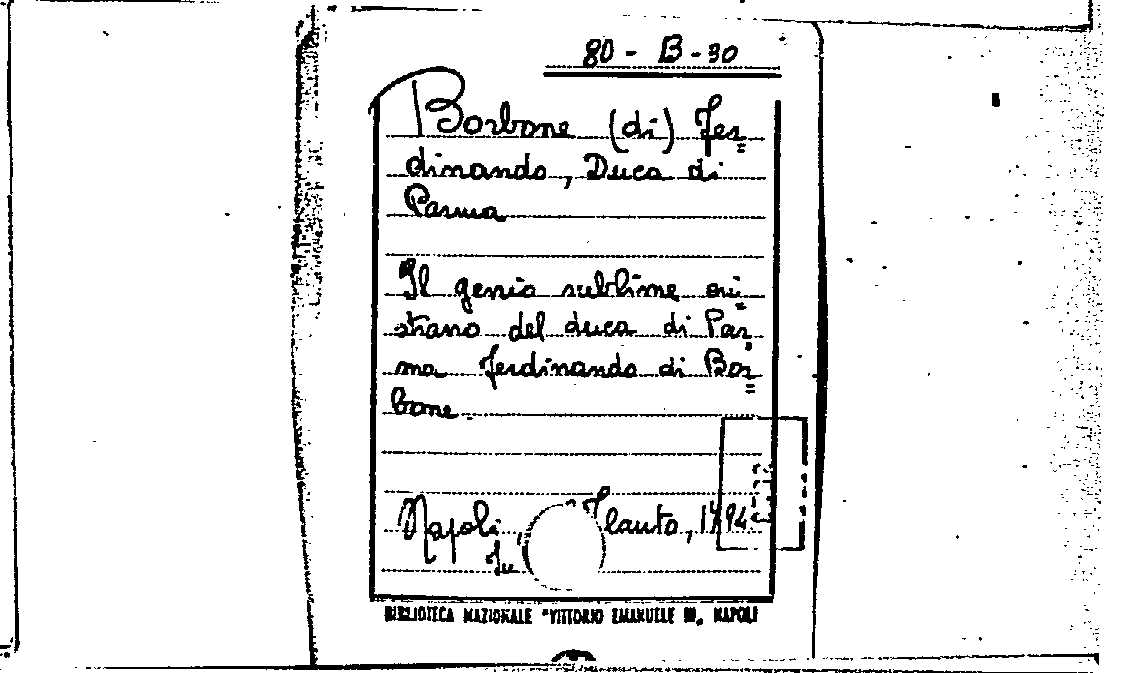 80 - B - 30
Borbone (di) Fer=
dinando, Duca di
Parma
Il genio sublime oui=
strano del duca di Par=
ma Ferdinando di Bor=
bone
Napoli, Flauto, 1794
In
BIBLIOTECA NAZIONALE "VITTORIO EMANUELE III", NAPOLI